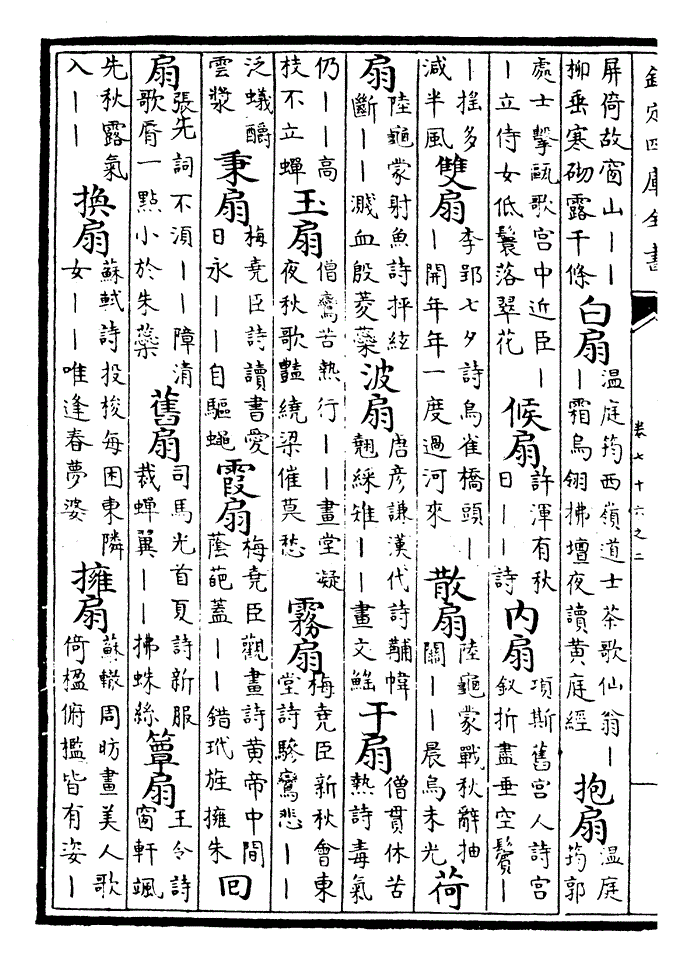 欽定四庫全書
卷七十六之二
屏倚故窗山一一
柳垂寒砌露千條
白扇
溫庭筠西嶺道士茶歌仙翁一
一霜烏翎拂壇夜讀黃庭經
抱扇
溫庭
筠郭
處士擊甌歌宮中近臣一
一立侍女低鬟落翠花
候扇
許渾有秋
日一一詩
內扇
項斯舊宮人詩宮
釵折盡垂空鬢一
一搖多
減半風
雙扇
李郢七夕詩烏雀橋頭一
一開年年一度過河來
散扇
陸龜蒙戰秋辭抽
關一一晨烏未光
荷
扇
陸龜蒙射魚詩抨絃
斷一一濺血殷菱蘂
波扇
唐彥謙漢代詩黼幃
翹綵雉一一畫文鰩
干扇
僧貫休苦
熱詩毒氣
仍一一高
枝不立蟬
玉扇
僧鸞苦熱行一一畫堂凝
夜秋歌豔繞梁催莫愁
霧扇
梅堯臣新秋會東
堂詩驂鸞悲一一
泛蟻酹
雲漿
秉扇
梅堯臣詩讀書愛
日永一一自驅蠅
霞扇
梅堯臣觀畫詩黃帝中間
蔭葩蓋一一錯玳旌擁朱
回
扇
張先詞不湏一一障清
歌脣一點小於朱蘂
舊扇
司馬光首夏詩新服
裁蟬翼一一拂蛛絲
簟扇
王令詩
窗軒颯
先秋露氣
入一一
換扇
蘇軾詩投梭每困東隣
女一一唯逢春夢婆
擁扇
蘇轍周昉畫美人歌
倚楹俯檻皆有姿一